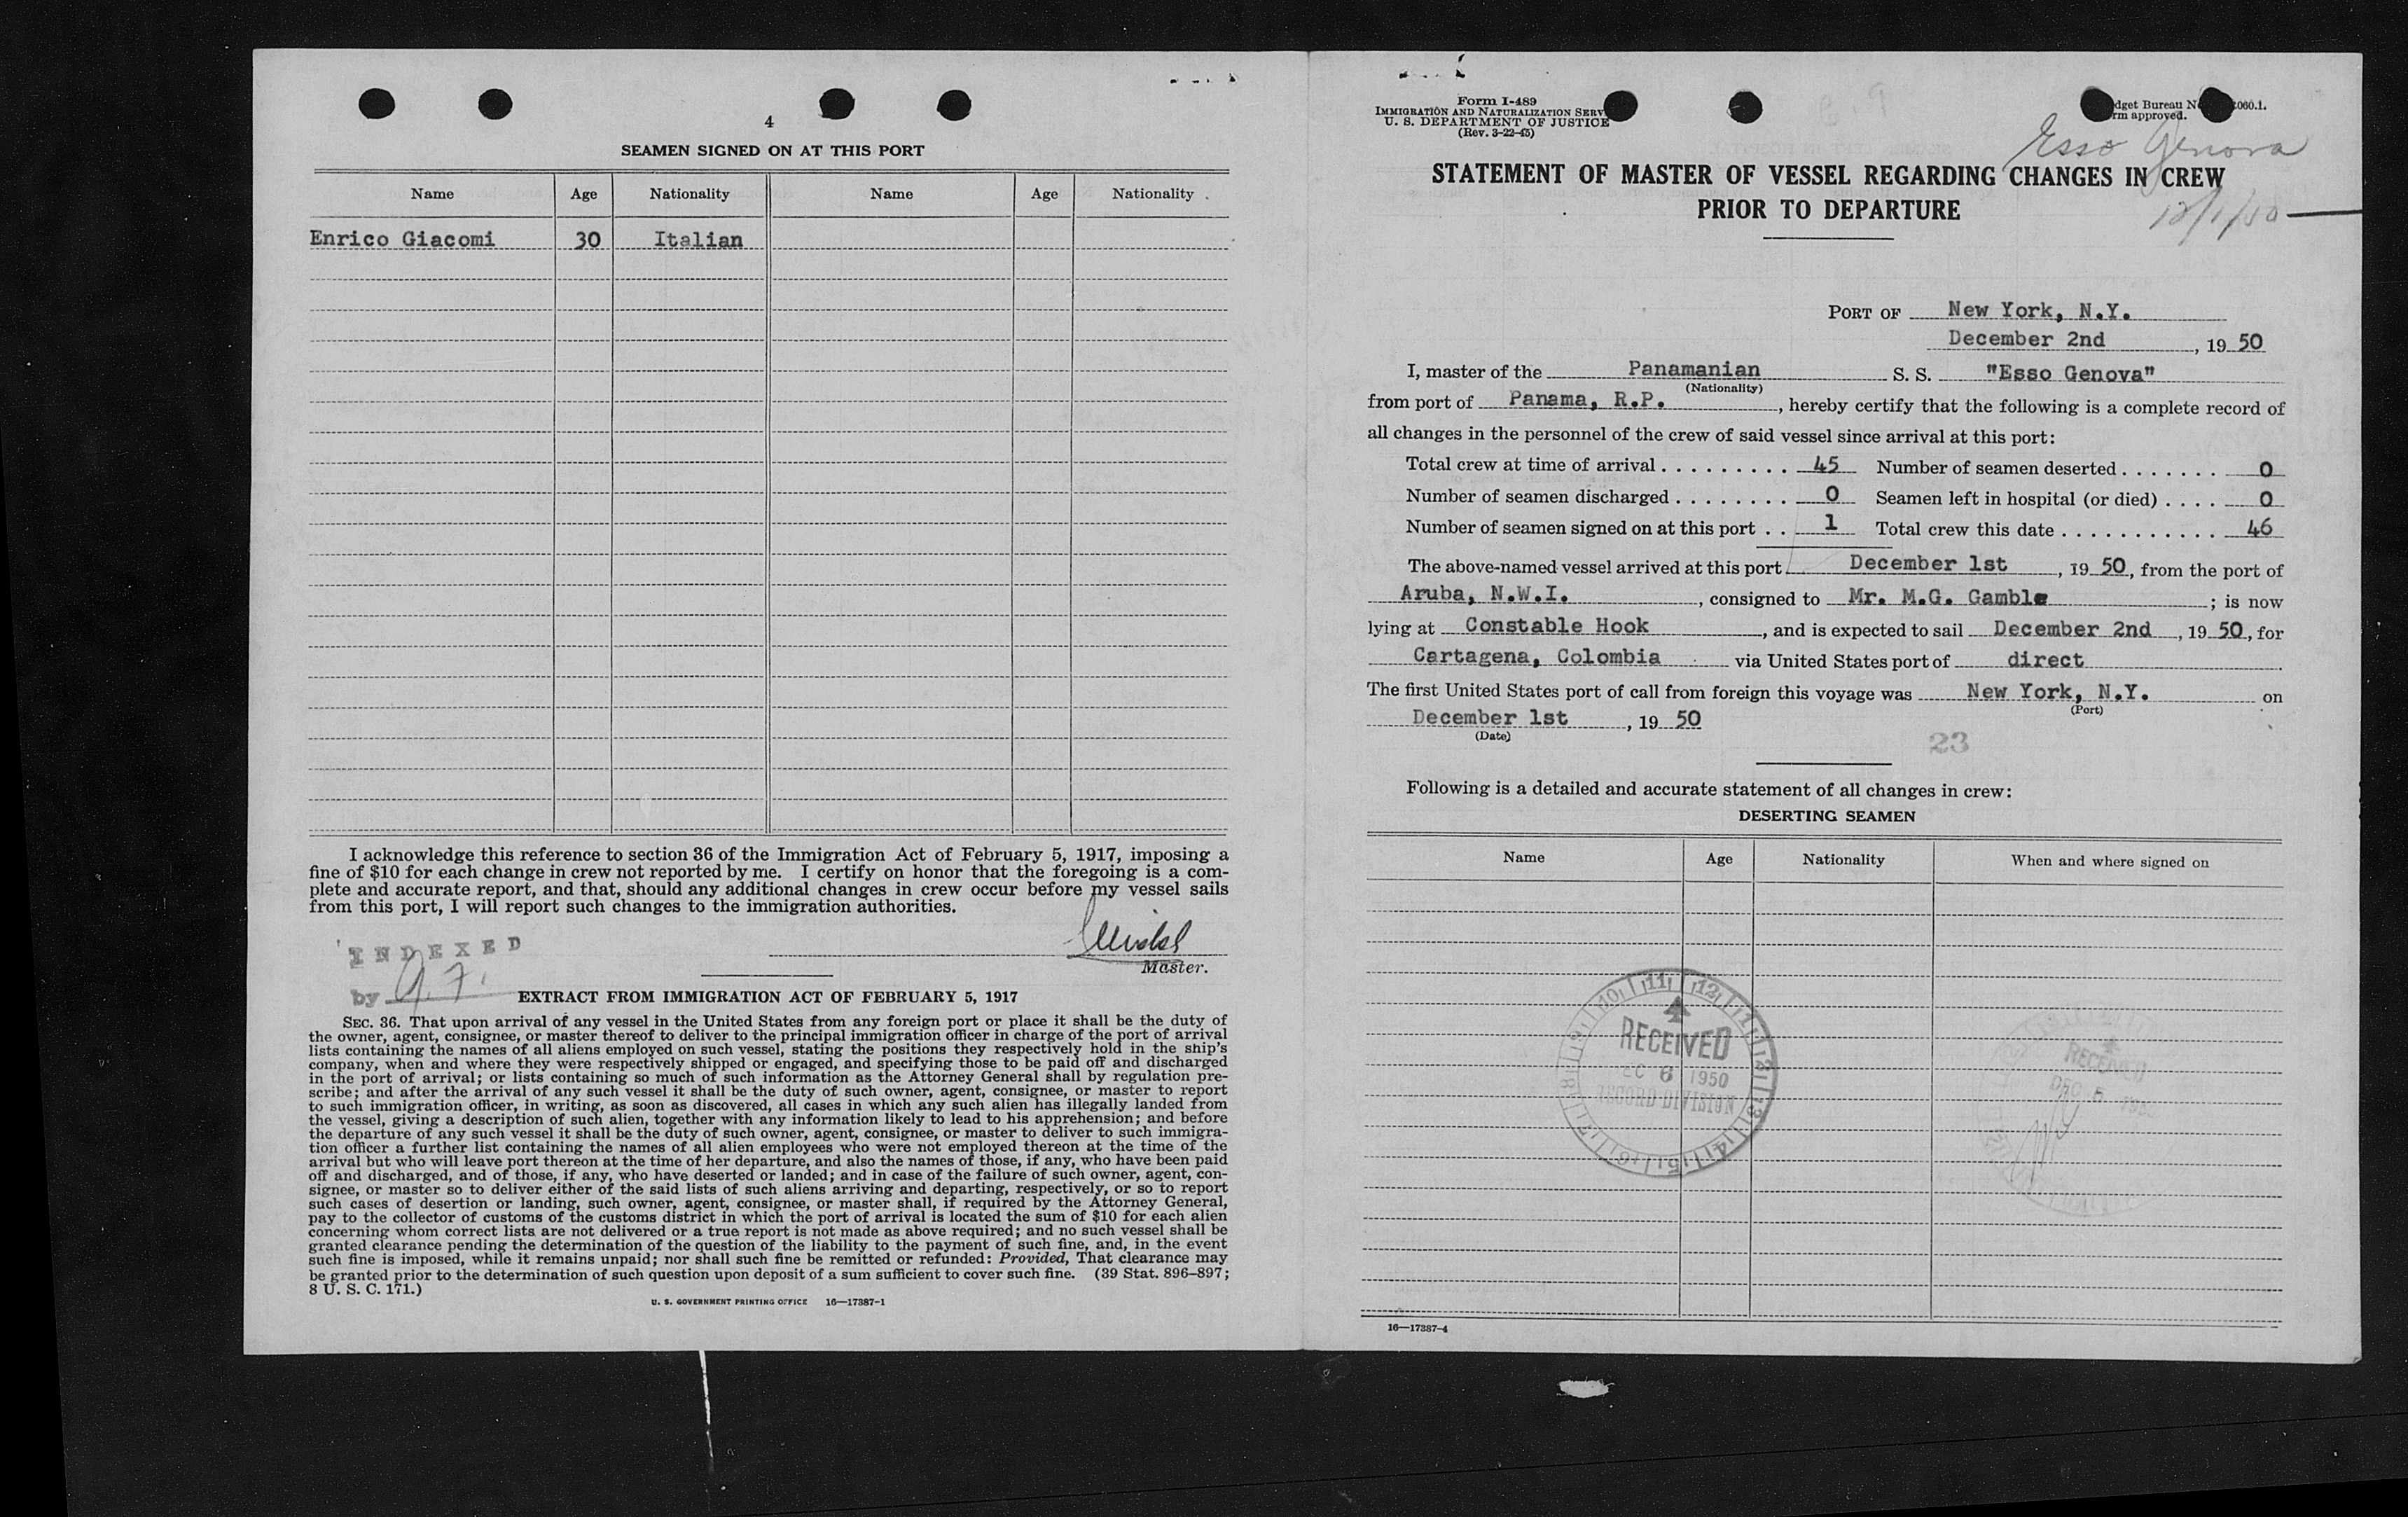 4
SEAMEN SIGNED ON AT THIS PORT
Name Age Nationality Name Age Nationality
Enrico Giacomi 30 Italian
I acknowledge this reference to section 36 of the Immigration Act of February 5, 1917, imposing a
fine of $10 for each change in crew not reported by me. I certify on honor that the foregoing is a com-
plete and accurate report, and that, should any additional changes in crew occur before my vessel sails
from this port, I will report such changes to the immigration authorities.
INDEXED
Master.
by
EXTRACT FROM IMMIGRATION ACT OF FEBRUARY 5, 1917
SEC. 36. That upon arrival of any vessel in the United States from any foreign port or place it shall be the duty of
the owner, agent, consignee, or master thereof to deliver to the principal immigration officer in charge of the port of arrival
lists containing the names of all aliens employed on such vessel, stating the positions they respectively hold in the ship's
company, when and where they were respectively shipped or engaged, and specifying those to be paid off and discharged
in the port of arrival; or lists containing so much of such information as the Attorney General shall by regulation pre-
scribe; and after the arrival of any such vessel it shall be the duty of such owner, agent, consignee, or master to report
to such immigration officer, in writing, as soon as discovered, all cases in which any such alien has illegally landed from
the vessel, giving a description of such alien, together with any information likely to lead to his apprehension; and before
the departure of any such vessel it shall be the duty of such owner, agent, consignee, or master to deliver to such immigra-
tion officer a further list containing the names of all alien employees who were not employed thereon at the time of the
arrival but who will leave port thereon at the time of her departure, and also the names of those, if any, who have been paid
off and discharged, and of those, if any, who have deserted or landed; and in case of the failure of such owner, agent, con-
signee, or master so to deliver either of the said lists of such aliens arriving and departing, respectively, or so to report
such cases of desertion or landing, such owner, agent, consignee, or master shall, if required by the Attorney General,
pay to the collector of customs of the customs district in which the port of arrival is located the sum of $10 for each alien
concerning whom correct lists are not delivered or a true report is not made as above required; and no such vessel shall be
granted clearance pending the determination of the question of the liability to the payment of such fine, and, in the event
such fine is imposed, while it remains unpaid; nor shall such fine be remitted or refunded: Provided, That clearance may
be granted prior to the determination of such question upon deposit of a sum sufficient to cover such fine. (39 Stat. 896–897;
8 U. S. C. 171.)
U. S. GOVERNMENT PRINTING OFFICE 16—17387-1
Form I-489
IMMIGRATION AND NATURALIZATION SERV
U. S. DEPARTMENT OF JUSTICE
(Rev. 3-22-45)
dget Bureau N 060.1.
rm approved.
Esso Genova
STATEMENT OF MASTER OF VESSEL REGARDING CHANGES IN CREW
PRIOR TO DEPARTURE
12/1/50
PORT OF New York, N.Y.
December 2nd, 19 50
I, master of the Panamanian S. S. "Esso Genova"
(Nationality)
from port of Panama, R.P., hereby certify that the following is a complete record of
all changes in the personnel of the crew of said vessel since arrival at this port:
Total crew at time of arrival . . . . . . . . . 45 Number of seamen deserted . . . . . . . 0
Number of seamen discharged . . . . . . . . 0 Seamen left in hospital (or died) . . . . 0
Number of seamen signed on at this port . . 1 Total crew this date . . . . . . . . . . . 46
The above-named vessel arrived at this port December 1st, 19 50, from the port of
Aruba, N.W.I., consigned to Mr. M.G. Gamble; is now
lying at Constable Hook, and is expected to sail December 2nd, 19 50, for
Cartagena, Colombia via United States port of direct.
The first United States port of call from foreign this voyage was New York, N.Y. on
(Port)
December 1st, 19 50
(Date)
23
Following is a detailed and accurate statement of all changes in crew:
DESERTING SEAMEN
Name Age Nationality When and where signed on
11 12 1 2 3 4 5 6 7 8 9 10
RECEIVED
EC 6 1950
RECORD DIVISION
RECEIVED
DEC 5 195
16—17387-4